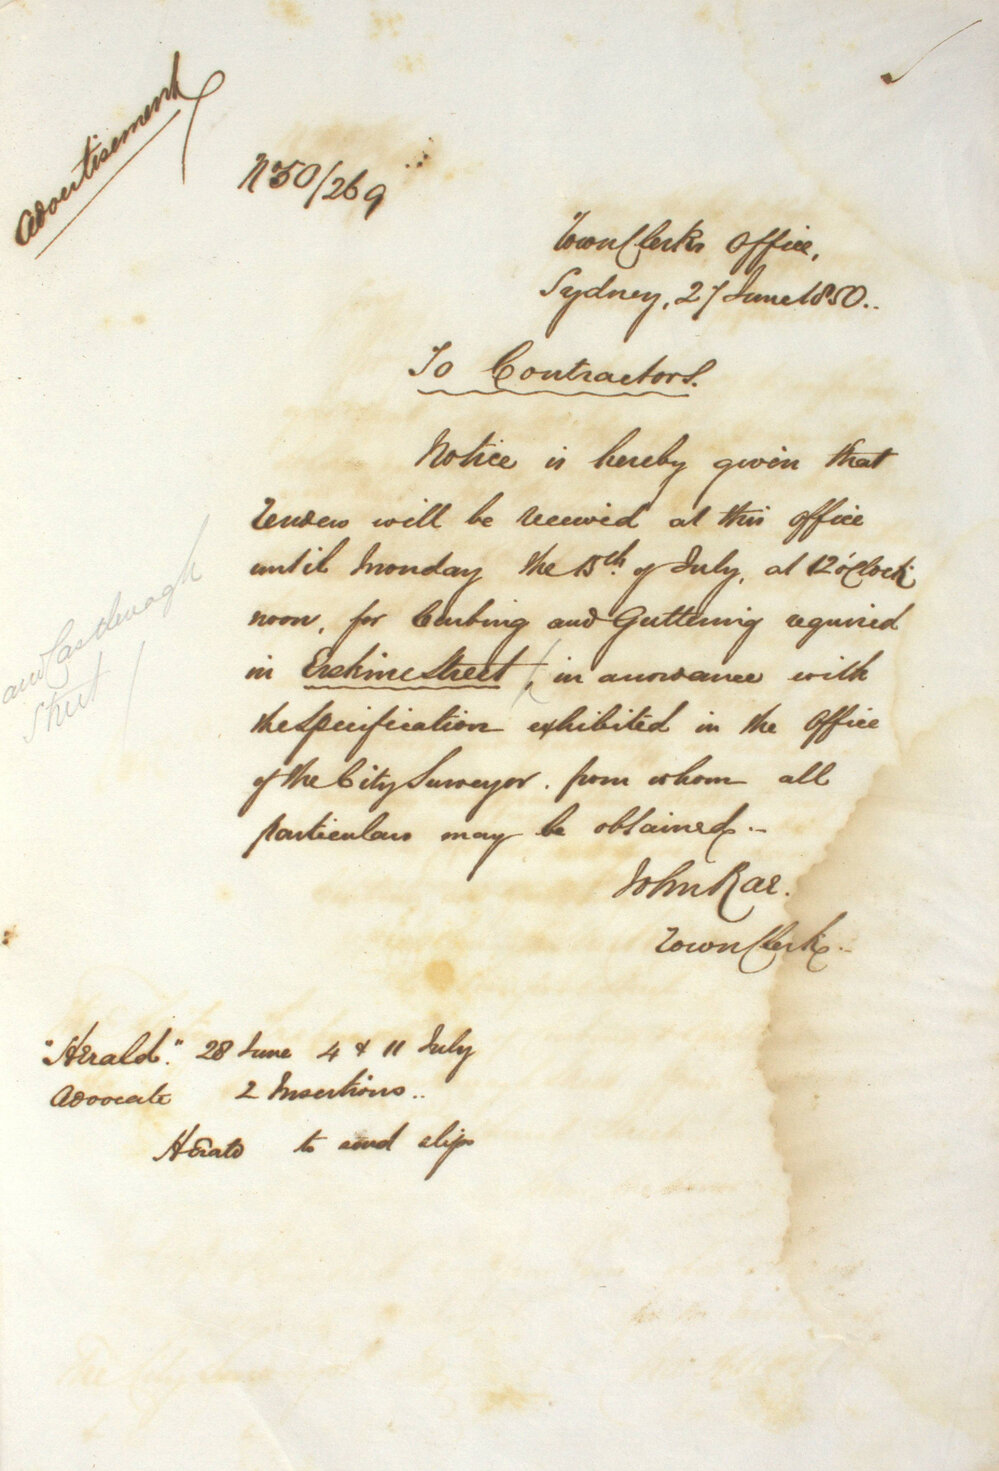 Advertisement
No 50/269
Town Clerks Office,
Sydney, 27 June 1850..
To Contractors.
Notice is hereby given that
Tenders will be received at this office
until Monday the 15th. of July, at 12 o'Clock
noon, for Curbing and Guttering required
in Erskine Street /, in accordance with
and Castlereagh
Street /
the Specification exhibited in the Office
of the City Surveyor. from whom all
particulars may be obtained.-
John Rae.
Town Clerk.-
"Herald." 28 June 4 & 11 July
Advocate 2 Insertions..
Herald to send slip